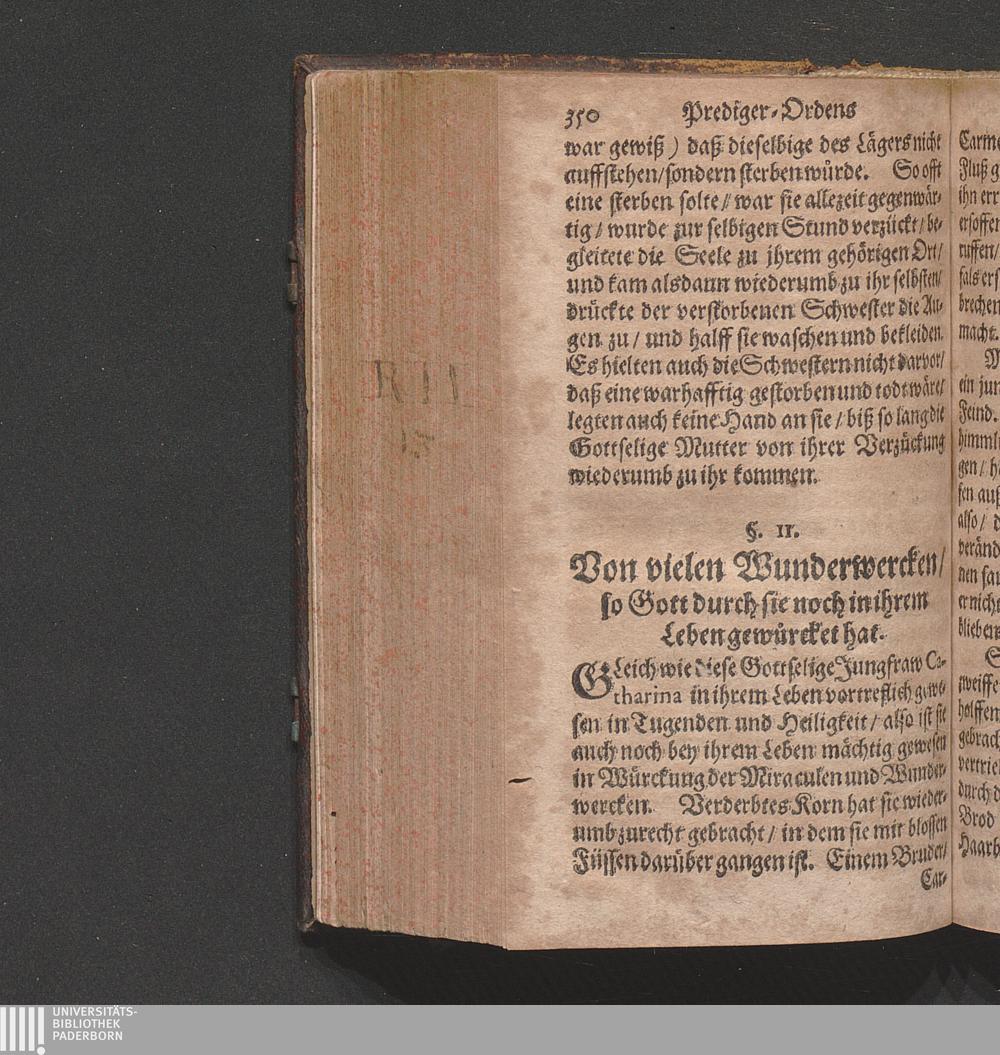 350 Prediger-Ordens
war gewiß) daß dieselbige des Lägers nicht
auffstehen/sondern sterben würde. So offt
eine sterben solte/ war sie allezeit gegenwär-
tig/ wurde zur selbigen Stund verzückt/ be-
gleitete die Seele zu jhrem gehörigen Ort/
und kam alsdann wiederumb zu ihr selbsten/
drückte der verstorbenen Schwester die Au-
gen zu/ und halff sie waschen und bekleiden.
Es hielten auch die Schwestern nicht darvor/
daß eine warhafftig gestorben und todt wäre/
legten auch keine Hand an sie/ biß so lang die
Gottselige Mutter von ihrer Verzückung
wiederumb zu ihr kommen.
§. II.
Von vielen Wunderwercken/
so Gott durch sie noch in ihrem
Leben gewürcket hat.
GLeich wie diese Gottselige Jungfraw Ca-
tharina in ihrem Leben vortreflich gewe-
sen in Tugenden und Heiligkeit/ also ist sie
auch noch bey ihrem Leben mächtig gewesen
in Würckung der Miraculen und Wunder-
wercken. Verderbtes Korn hat sie wieder-
umb zurecht gebracht/ in dem sie mit blossen
Füssen darüber gangen ist. Einem Bruder/
Car-
Carme
Fluß g
ihn err
ersoffen
ruffen/
fals ers
brechen
macht.
M
ein jun
Feind.
himmli
gen/ h
sen auß
also/ d
veränd
nen san
er nicht
blieben
S
zweiffe
holffen
gebrach
vertrie
durch d
Brod
Haarh
UNIVERSITÄTS-
BIBLIOTHEK
PADERBORN